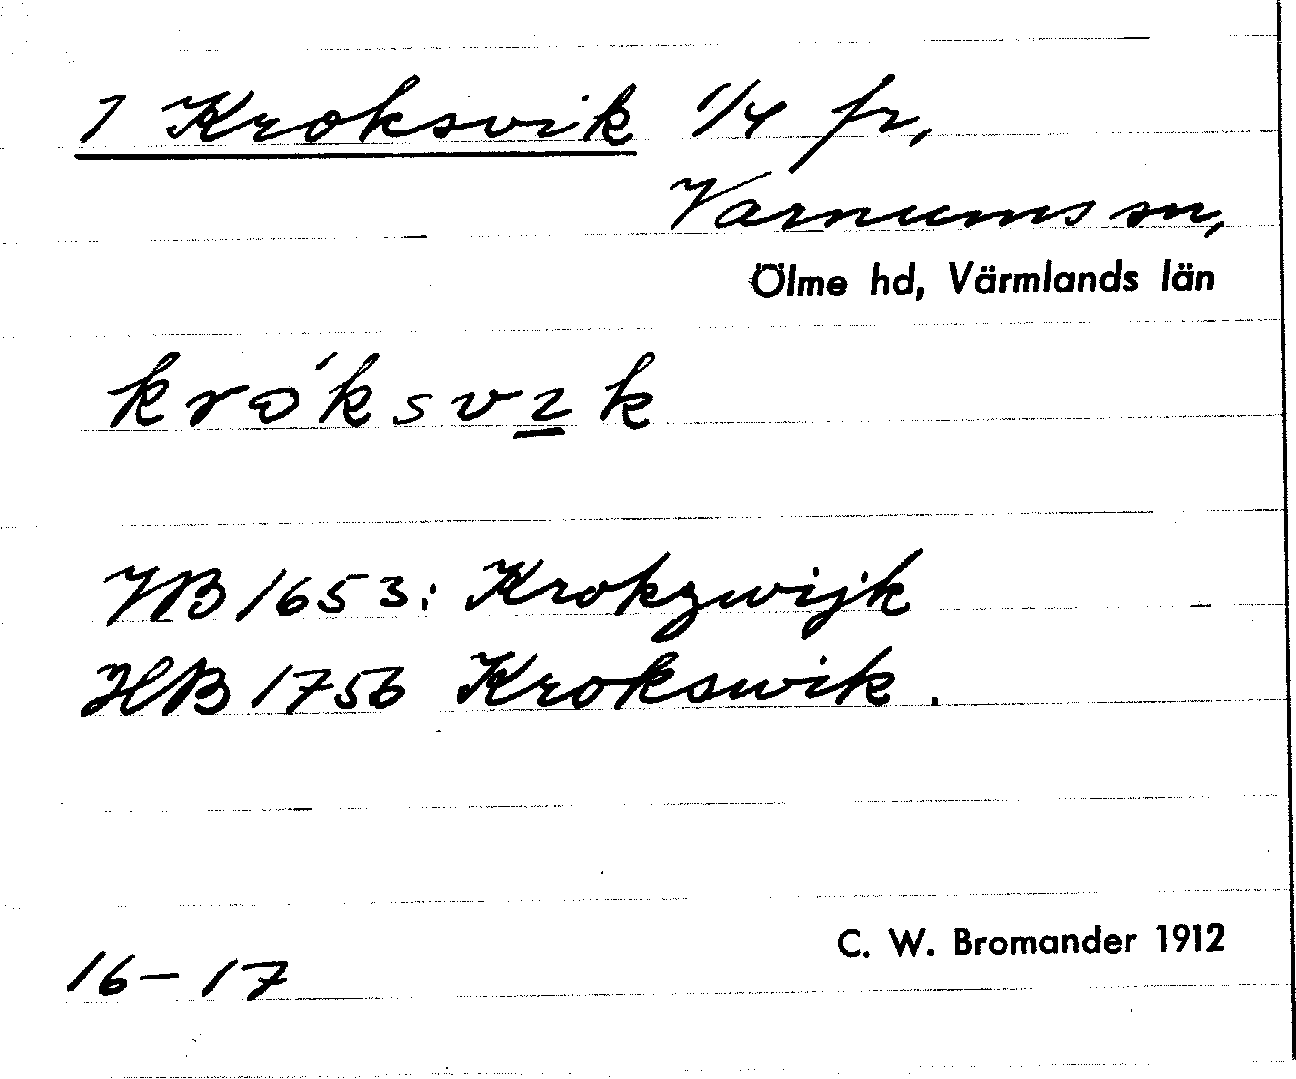 1 Kroksvik 1/4 fr,
Varnums sn,
Ölme hd, Värmlands län
krо́ksvik
JB 1653: Krokzwijk
HB 1756 Krokswik.
C. W. Bromander 1912
16-17